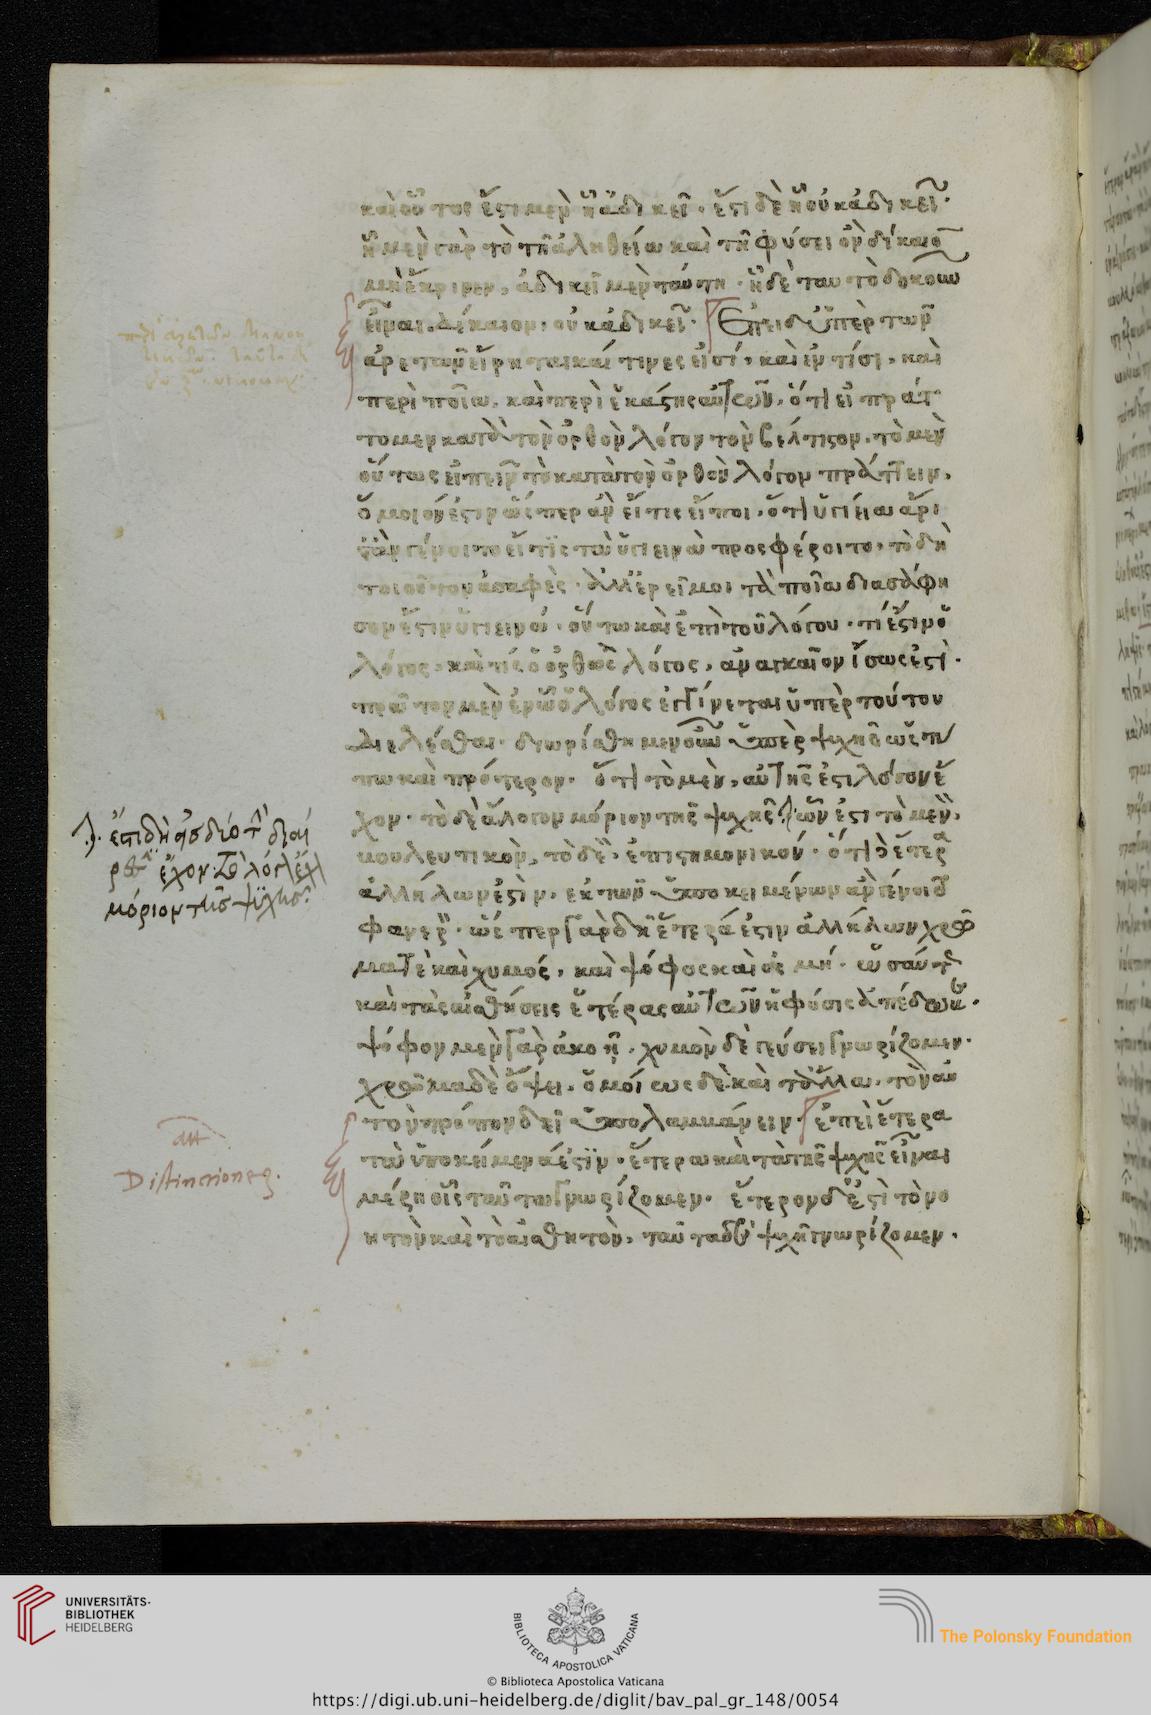 καὶ οὗτος ἔστι μὲν ᾗ ἀδικεῖ. ἔστι δὲ ᾗ οὐκ ἀδικεῖ.
ᾗ μὲν γὰρ τὸ τῇ ἀληθείᾳ καὶ τῇ φύσει ὂν δίκαιον
μὴ ἔκρινεν, ἀδικεῖ μὲν ταύτῃ. ᾗ δὲ τὸ δοκοῦν
εἶναι δίκαιον, οὐκ ἀδικεῖ. Ἐπεὶ δ' ὑπὲρ τῶν
ἀρετῶν εἴρηται καί τινες εἰσί, καὶ ἐν τίσι, καὶ
περὶ ποῖα, καὶ περὶ ἑκάστης αὐτῶν, ὅτι εἰ πράτ
τομεν κατὰ τὸν ὀρθὸν λόγον τὸν βέλτιστον, τὸ μὲν
οὕτως εἰπεῖν τὸ κατὰ τὸν ὀρθὸν λόγον πράττειν,
ὅμοιόν ἐστιν ὥσπερ ἂν εἴ τις εἴποι, ὅτι ὑγίεια ἄρι
στ' ἂν γένοιτο εἴ τις τὰ ὑγιεινὰ προσφέροιτο, τὸ δὴ
τοιοῦτον ἀσαφές. ἀλλ' ἐρεῖ μοι τὰ ποῖα διασάφη
σον ἔστιν ὑγιεινά. οὕτω καὶ ἐπὶ τοῦ λόγου. τί ἐστιν ὁ
λόγος, καὶ τίς ὁ ὀρθὸς λόγος, ἀναγκαῖον ἴσως ἐστὶ.
πρῶτον μὲν ἐν ᾧ ὁ λόγος ἐγγίνεται ὑπὲρ τούτου
διελέσθαι. διωρίσθη μὲν οὖν ὑπὲρ ψυχῆς ὡς τύ
πῳ καὶ πρότερον. ὅτι τὸ μὲν, αὐτῆς ἐστι λόγον ἔ
χον. τὸ δὲ ἄλογον μόριον τῆς ψυχῆς, ὧν ἐστι τὸ μὲν,
βουλευτικὸν, τὸ δὲ, ἐπιστημονικόν. ὅτι δ' ἕτερα
ἀλλήλων ἐστὶν, ἐκ τῶν ὑποκειμένων ἂν γένοιτο
φανερὸν. ὥσπερ γὰρ δὴ ἕτερά ἐστιν ἀλλήλων χρῶ
μά τε καὶ χυμός, καὶ ψόφος καὶ ὀσμή. ὡσαύτως
καὶ τὰς αἰσθήσεις ἑτέρας αὐτῶν ἡ φύσις ἀπέδωκεν.
ψόφον μὲν γὰρ ἀκοῇ, χυμὸν δὲ γεύσει γνωρίζομεν.
χρῶμα δὲ ὄψει. ὁμοίως δὲ καὶ τὰ ἄλλα, τὸν αὐ
τὸν τρόπον δεῖ ὑπολαμβάνειν. ἐπεὶ ἕτερα
τὰ ὑποκείμενά ἐστιν, ἕτερα καὶ τὰ τῆς ψυχῆς εἶναι
μέρη οἷς ταῦτα γνωρίζομεν. ἕτερον δ' ἐστὶ τὸ νο
ητὸν καὶ τὸ αἰσθητὸν, ταῦτα δὲ ψυχῇ γνωρίζομεν.
μόριον τῆς ψυχῆς
Distinctiones.
UNIVERSITÄTS-
BIBLIOTHEK
HEIDELBERG
BIBLIOTECA APOSTOLICA VATICANA
The Polonsky Foundation
© Biblioteca Apostolica Vaticana
https://digi.ub.uni-heidelberg.de/diglit/bav_pal_gr_148/0054